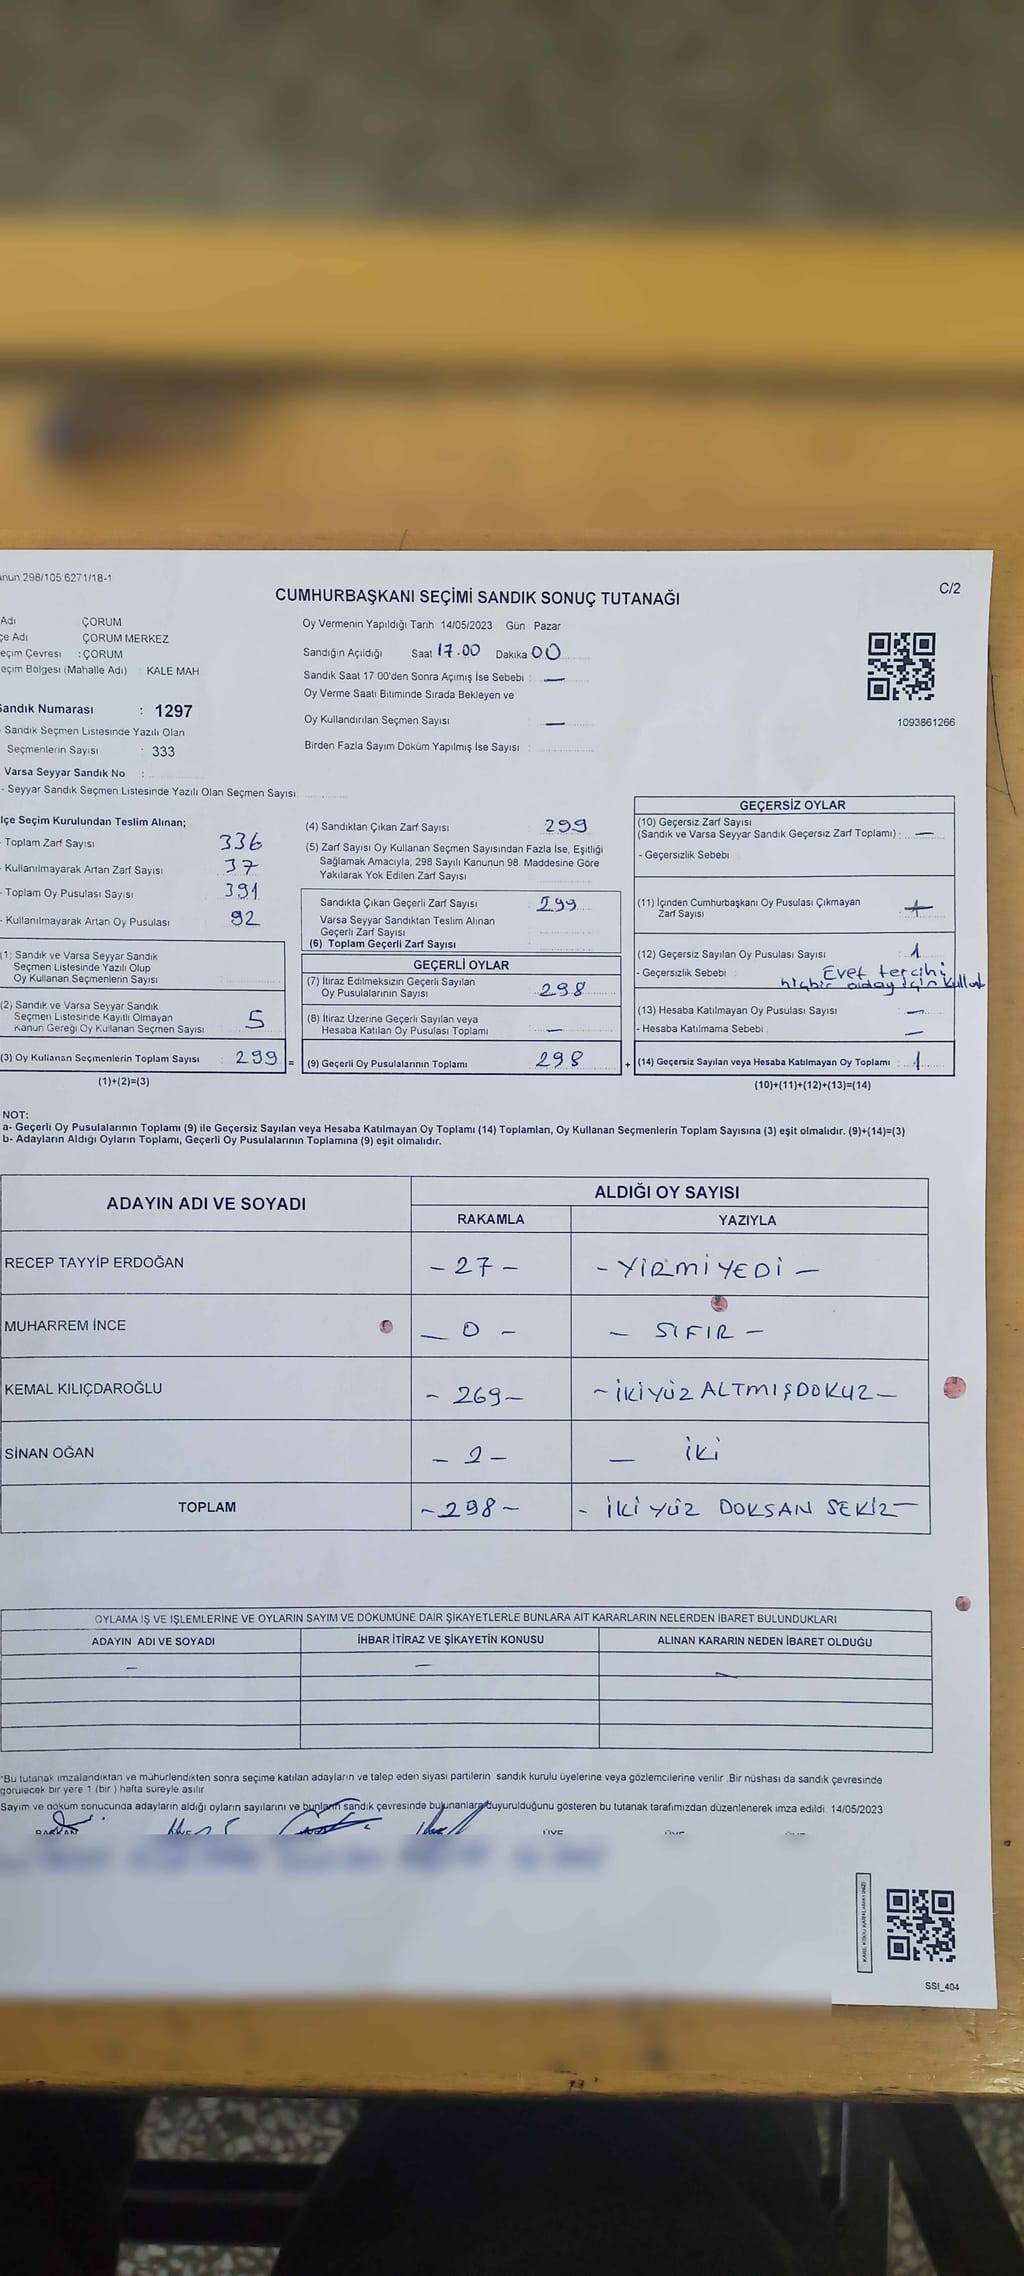 anun 298/105 6271/18-1
C/2
CUMHURBAŞKANI SEÇİMİ SANDIK SONUÇ TUTANAĞI
Adı : ÇORUM
çe Adı : ÇORUM MERKEZ
eçim Çevresi : ÇORUM
eçim Bölgesi (Mahalle Adı) : KALE MAH
Sandık Numarası : 1297
- Sandık Seçmen Listesinde Yazılı Olan
Seçmenlerin Sayısı : 333
Varsa Seyyar Sandık No :
- Seyyar Sandık Seçmen Listesinde Yazılı Olan Seçmen Sayısı
Oy Vermenin Yapıldığı Tarih 14/05/2023 Gün Pazar
Sandığın Açıldığı Saat 17.00 Dakika 00
Sandık Saat 17.00'den Sonra Açımış İse Sebebi : —
Oy Verme Saati Bitiminde Sırada Bekleyen ve
Oy Kullandırılan Seçmen Sayısı : —
Birden Fazla Sayım Döküm Yapılmış İse Sayısı :
1093861266
lçe Seçim Kurulundan Teslim Alınan;
- Toplam Zarf Sayısı 336
- Kullanılmayarak Artan Zarf Sayısı 37
- Toplam Oy Pusulası Sayısı 391
- Kullanılmayarak Artan Oy Pusulası 92
(1) Sandık ve Varsa Seyyar Sandık
Seçmen Listesinde Yazılı Olup
Oy Kullanan Seçmenlerin Sayısı
(2) Sandık ve Varsa Seyyar Sandık
Seçmen Listesinde Kayıtlı Olmayan
Kanun Gereği Oy Kullanan Seçmen Sayısı : 5
(3) Oy Kullanan Seçmenlerin Toplam Sayısı : 299 =
(1)+(2)=(3)
(4) Sandıktan Çıkan Zarf Sayısı : 299
(5) Zarf Sayısı Oy Kullanan Seçmen Sayısından Fazla İse, Eşitliği
Sağlamak Amacıyla, 298 Sayılı Kanunun 98. Maddesine Göre
Yakılarak Yok Edilen Zarf Sayısı
Sandıkta Çıkan Geçerli Zarf Sayısı : 299
Varsa Seyyar Sandıktan Teslim Alınan
Geçerli Zarf Sayısı
(6) Toplam Geçerli Zarf Sayısı
GEÇERLİ OYLAR
(7) İtiraz Edilmeksizin Geçerli Sayılan
Oy Pusulalarının Sayısı : 298
(8) İtiraz Üzerine Geçerli Sayılan veya
Hesaba Katılan Oy Pusulası Toplamı : —
(9) Geçerli Oy Pusulalarının Toplamı : 298 +
GEÇERSİZ OYLAR
(10) Geçersiz Zarf Sayısı
(Sandık ve Varsa Seyyar Sandık Geçersiz Zarf Toplamı) : —
- Geçersizlik Sebebi :
(11) İçinden Cumhurbaşkanı Oy Pusulası Çıkmayan
Zarf Sayısı
(12) Geçersiz Sayılan Oy Pusulası Sayısı : 1
- Geçersizlik Sebebi : Evet tercihi
hiçbir aday için kullan
(13) Hesaba Katılmayan Oy Pusulası Sayısı : —
- Hesaba Katılmama Sebebi : —
(14) Geçersiz Sayılan veya Hesaba Katılmayan Oy Toplamı : 1
(10)+(11)+(12)+(13)=(14)
NOT:
a- Geçerli Oy Pusulalarının Toplamı (9) ile Geçersiz Sayılan veya Hesaba Katılmayan Oy Toplamı (14) Toplamları, Oy Kullanan Seçmenlerin Toplam Sayısına (3) eşit olmalıdır. (9)+(14)=(3)
b- Adayların Aldığı Oyların Toplamı, Geçerli Oy Pusulalarının Toplamına (9) eşit olmalıdır.
ADAYIN ADI VE SOYADI ALDIĞI OY SAYISI
RAKAMLA YAZIYLA
RECEP TAYYİP ERDOĞAN - 27 - - YİRMİ YEDİ -
MUHARREM İNCE - 0 - - SIFIR -
KEMAL KILIÇDAROĞLU - 269 - - İKİYÜZ ALTMIŞDOKUZ -
SİNAN OĞAN - 2 - - İKİ
TOPLAM - 298 - - İKİ YÜZ DOKSAN SEKİZ -
OYLAMA İŞ VE İŞLEMLERİNE VE OYLARIN SAYIM VE DÖKÜMÜNE DAİR ŞİKAYETLERLE BUNLARA AİT KARARLARIN NELERDEN İBARET BULUNDUKLARI
ADAYIN ADI VE SOYADI İHBAR İTİRAZ VE ŞİKAYETİN KONUSU ALINAN KARARIN NEDEN İBARET OLDUĞU
— — —
*Bu tutanak imzalandıktan ve mühürlendikten sonra seçime katılan adayların ve talep eden siyasi partilerin sandık kurulu üyelerine veya gözlemcilerine verilir. Bir nüshası da sandık çevresinde
görülecek bir yere 1 (bir ) hafta süreyle asılır.
Sayım ve döküm sonucunda adayların aldığı oyların sayılarını ve bunların sandık çevresinde bulunanlara duyurulduğunu gösteren bu tutanak tarafımızdan düzenlenerek imza edildi. 14/05/2023
BAŞKAN ÜYE ÜYE
SSI_404